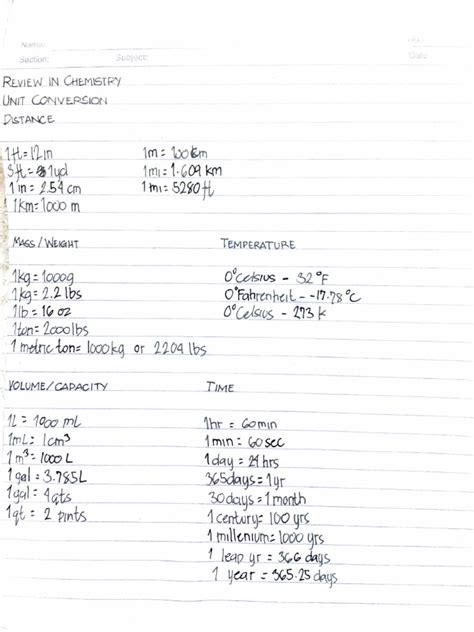 Name:
Section: Subject: Date:
REVIEW IN CHEMISTRY
UNIT CONVERSION
DISTANCE
1ft = 12in
3ft = 1yd
1in = 2.54 cm
1km = 1000 m
1m = 100cm
1mi = 1.609 km
1mi = 5280 ft
MASS / WEIGHT
1kg = 1000g
1kg = 2.2 lbs
1lb = 16 oz
1ton = 2000lbs
1 metric ton = 1000kg or 2204 lbs
TEMPERATURE
0°Celsius - 32 °F
0°Fahrenheit - -17.78 °C
0°Celsius - 273 k
VOLUME/CAPACITY
1L = 1000 mL
1mL = 1cm³
1m³ = 1000 L
1gal = 3.785L
1gal = 4qts
1qt = 2 pints
TIME
1hr = 60min
1min = 60sec
1day = 24 hrs
365days = 1yr
30days = 1month
1 century = 100 yrs
1 millenium = 1000 yrs
1 leap yr = 366 days
1 year = 365.25 days